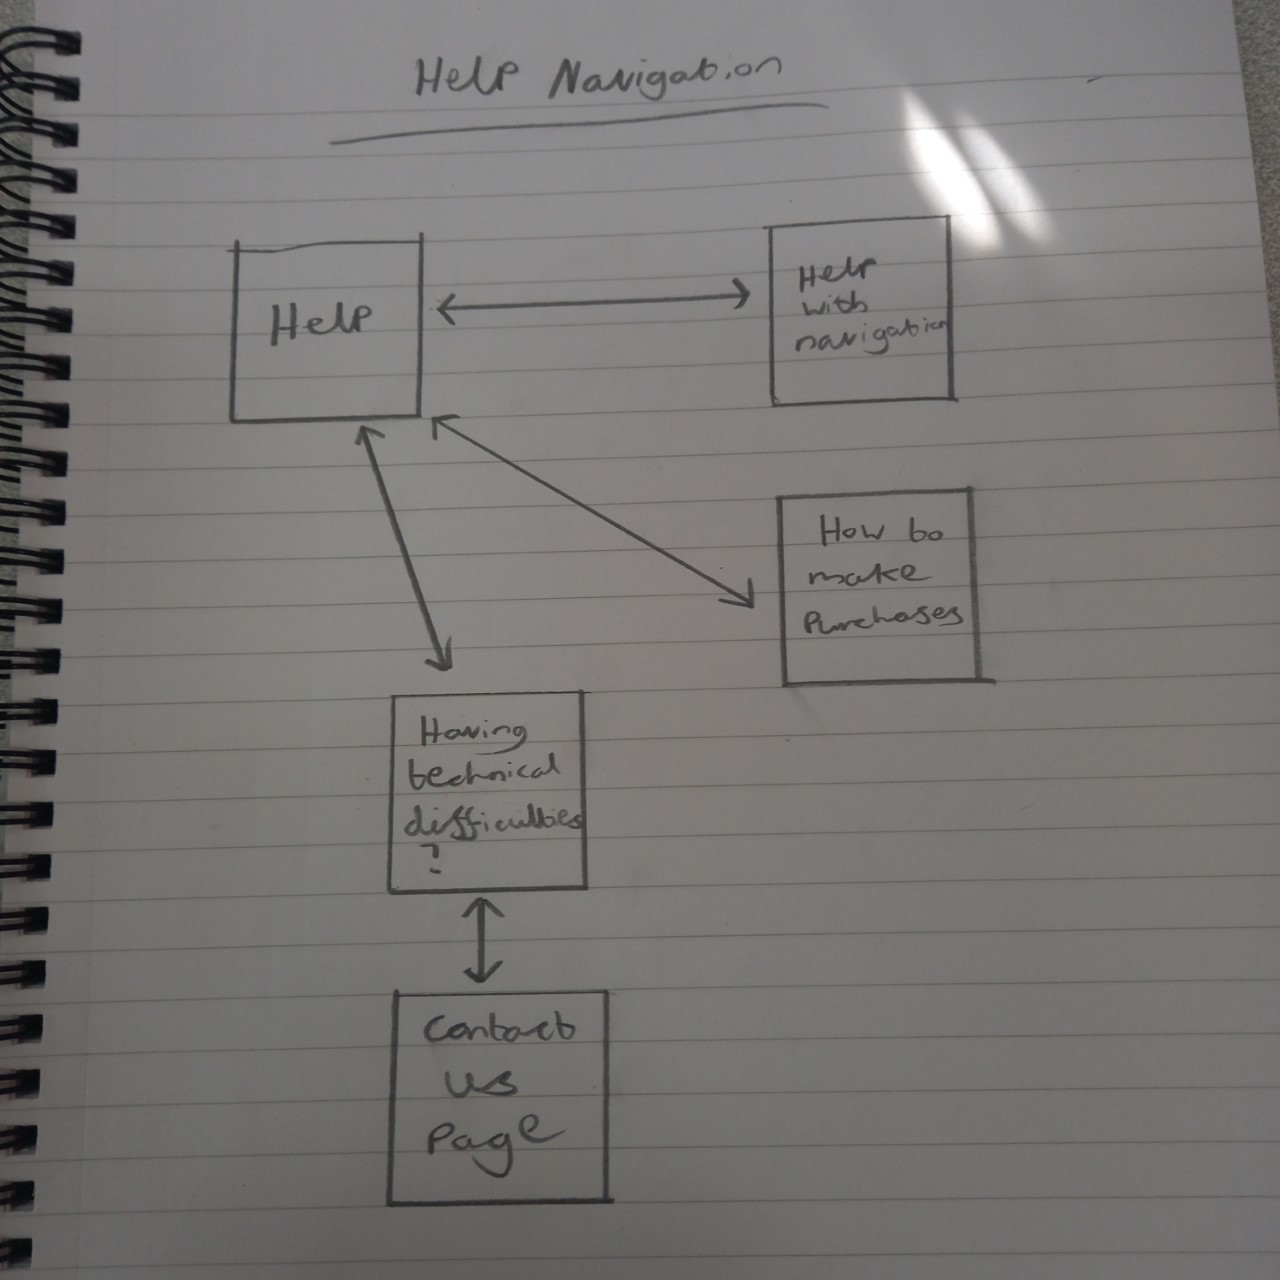 Help Navigation
Help
Help
with
navigation
How to
make
Purchases
Having
technical
difficulties
?
Contact
us
Page